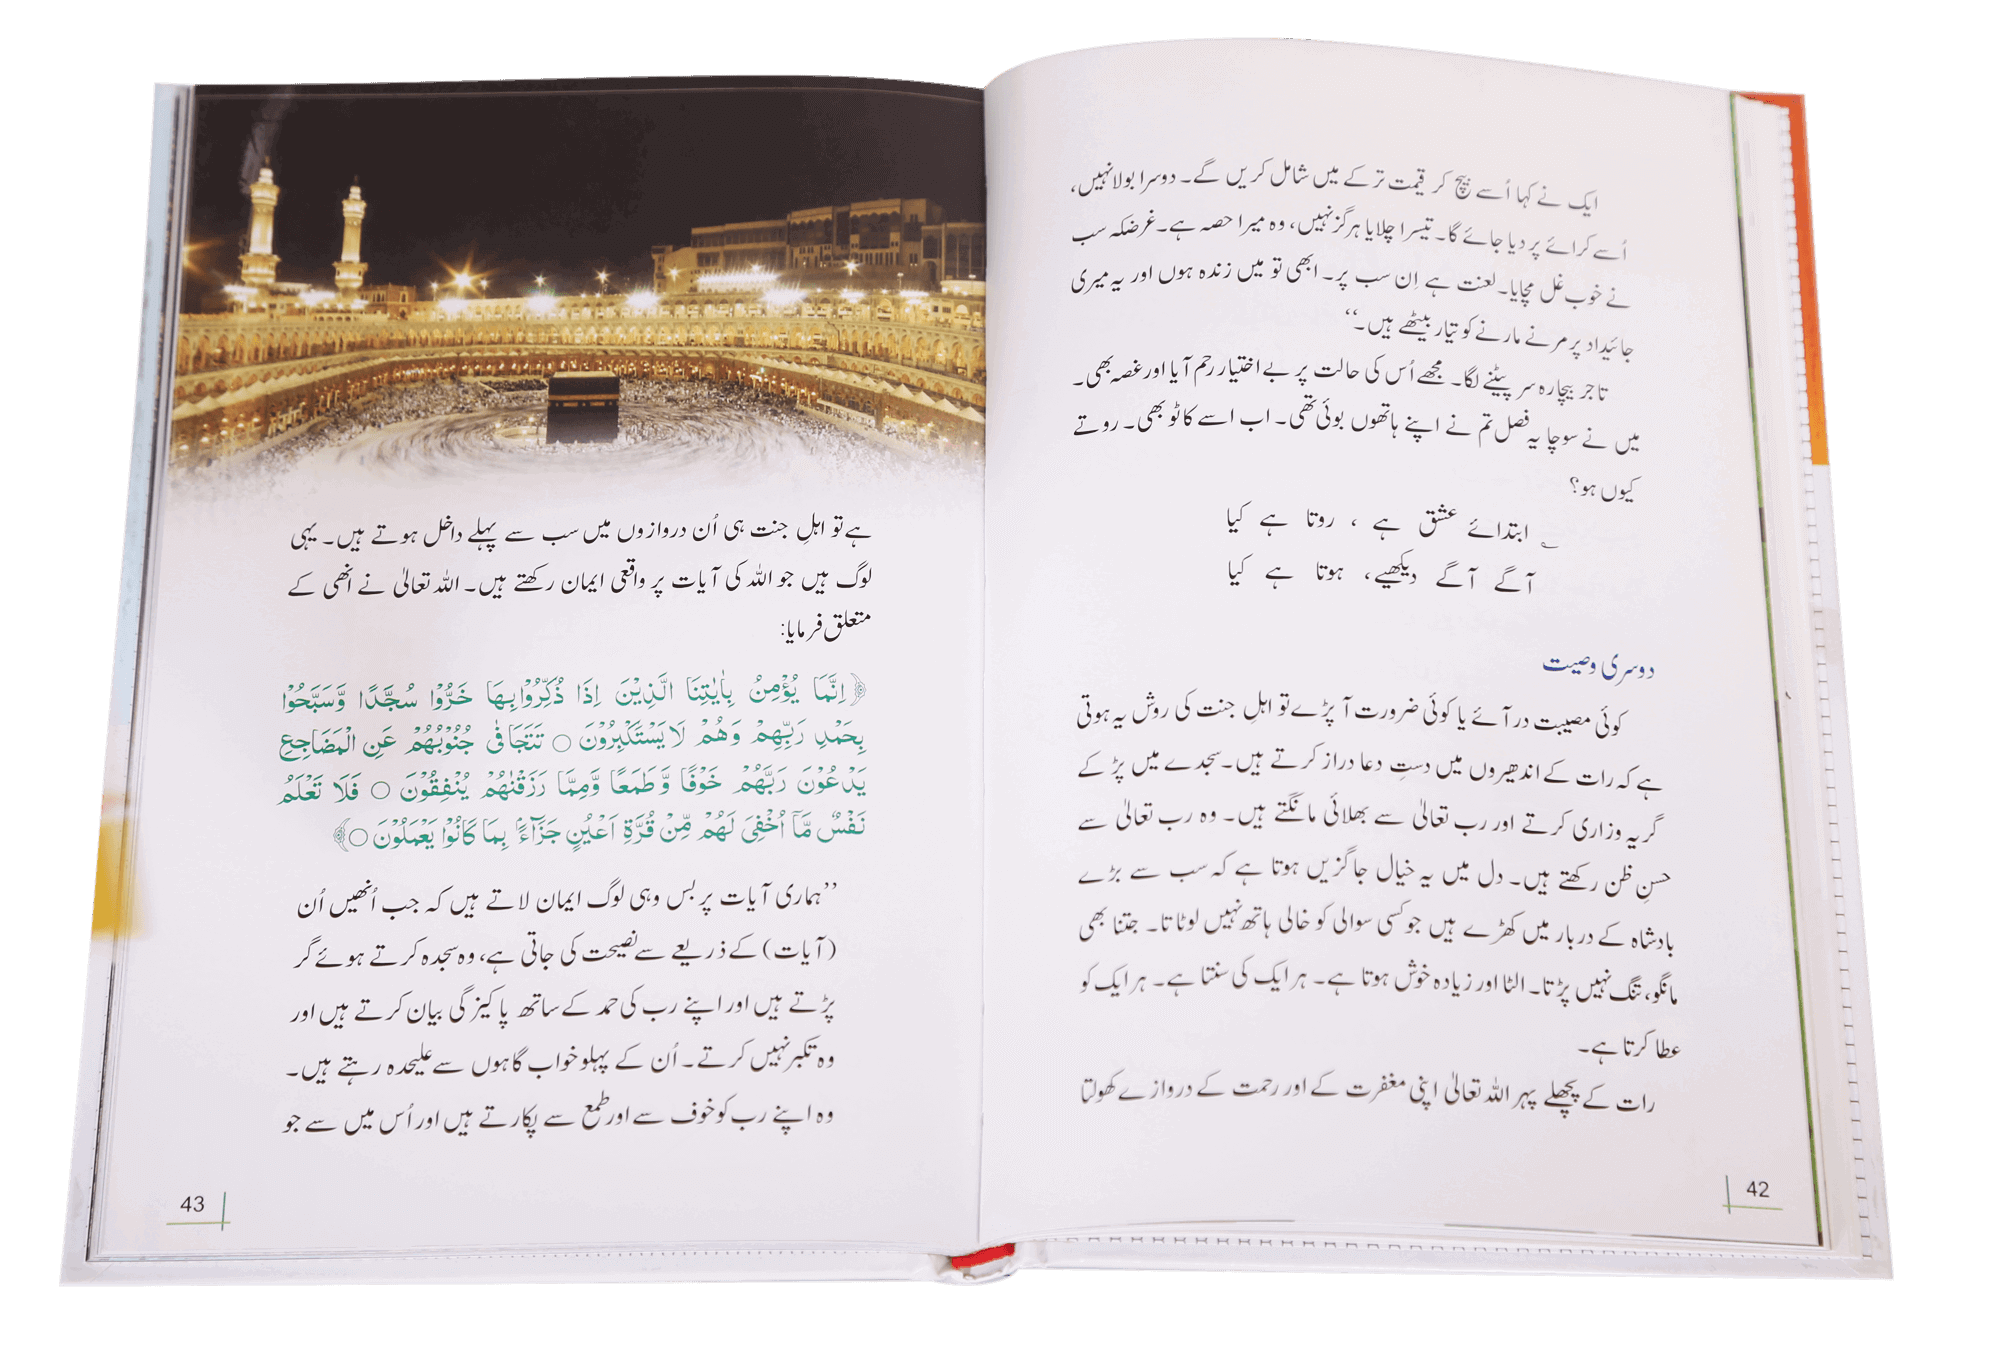 ایک نے کہا اُسے بیچ کر قیمت ترکے میں شامل کریں گے۔ دوسرا بولا نہیں،
اُسے کرائے پر دیا جائے گا۔ تیسرا چلایا ہرگز نہیں، وہ میرا حصہ ہے۔ غرضکہ سب
نے خوب غل مچایا۔ لعنت ہے اِن سب پر۔ ابھی تو میں زندہ ہوں اور یہ میری
جائیداد پر مرنے مارنے کو تیار بیٹھے ہیں۔‘‘
تاجر بیچارہ سر پیٹنے لگا۔ مجھے اُس کی حالت پر بے اختیار رحم آیا اور غصہ بھی۔
میں نے سوچا یہ فصل تم نے اپنے ہاتھوں بوئی تھی۔ اب اسے کاٹو بھی۔ روتے
کیوں ہو؟
؎ ابتدائے عشق ہے ، روتا ہے کیا
آگے آگے دیکھیے، ہوتا ہے کیا
دوسری وصیت
کوئی مصیبت در آئے یا کوئی ضرورت آ پڑے تو اہلِ جنت کی روش یہ ہوتی
ہے کہ رات کے اندھیروں میں دستِ دعا دراز کرتے ہیں۔ سجدے میں پڑ کے
گریہ وزاری کرتے اور رب تعالیٰ سے بھلائی مانگتے ہیں۔ وہ رب تعالیٰ سے
حسنِ ظن رکھتے ہیں۔ دل میں یہ خیال جاگزیں ہوتا ہے کہ سب سے بڑے
بادشاہ کے دربار میں کھڑے ہیں جو کسی سوالی کو خالی ہاتھ نہیں لوٹاتا۔ جتنا بھی
مانگو، تنگ نہیں پڑتا۔ الٹا اور زیادہ خوش ہوتا ہے۔ ہر ایک کی سنتا ہے۔ ہر ایک کو
عطا کرتا ہے۔
رات کے پچھلے پہر اللہ تعالیٰ اپنی مغفرت کے اور رحمت کے دروازے کھولتا
42
ہے تو اہلِ جنت ہی اُن دروازوں میں سب سے پہلے داخل ہوتے ہیں۔ یہی
لوگ ہیں جو اللہ کی آیات پر واقعی ایمان رکھتے ہیں۔ اللہ تعالیٰ نے انھی کے
متعلق فرمایا:
﴿اِنَّمَا يُؤْمِنُ بِاٰيٰتِنَا الَّذِيْنَ اِذَا ذُكِّرُوْا بِهَا خَرُّوْا سُجَّدًا وَّسَبَّحُوْا
بِحَمْدِ رَبِّهِمْ وَهُمْ لَا يَسْتَكْبِرُوْنَ ○ تَتَجَافٰى جُنُوْبُهُمْ عَنِ الْمَضَاجِعِ
يَدْعُوْنَ رَبَّهُمْ خَوْفًا وَّطَمَعًا وَّمِمَّا رَزَقْنٰهُمْ يُنْفِقُوْنَ ○ فَلَا تَعْلَمُ
نَفْسٌ مَّآ اُخْفِيَ لَهُمْ مِّنْ قُرَّةِ اَعْيُنٍ جَزَآءًۢ بِمَا كَانُوْا يَعْمَلُوْنَ ○﴾
’’ہماری آیات پر بس وہی لوگ ایمان لاتے ہیں کہ جب اُنھیں اُن
(آیات) کے ذریعے سے نصیحت کی جاتی ہے، وہ سجدہ کرتے ہوئے گر
پڑتے ہیں اور اپنے رب کی حمد کے ساتھ پاکیزگی بیان کرتے ہیں اور
وہ تکبر نہیں کرتے۔ اُن کے پہلو خواب گاہوں سے علیحدہ رہتے ہیں۔
وہ اپنے رب کو خوف سے اور طمع سے پکارتے ہیں اور اُس میں سے جو
43